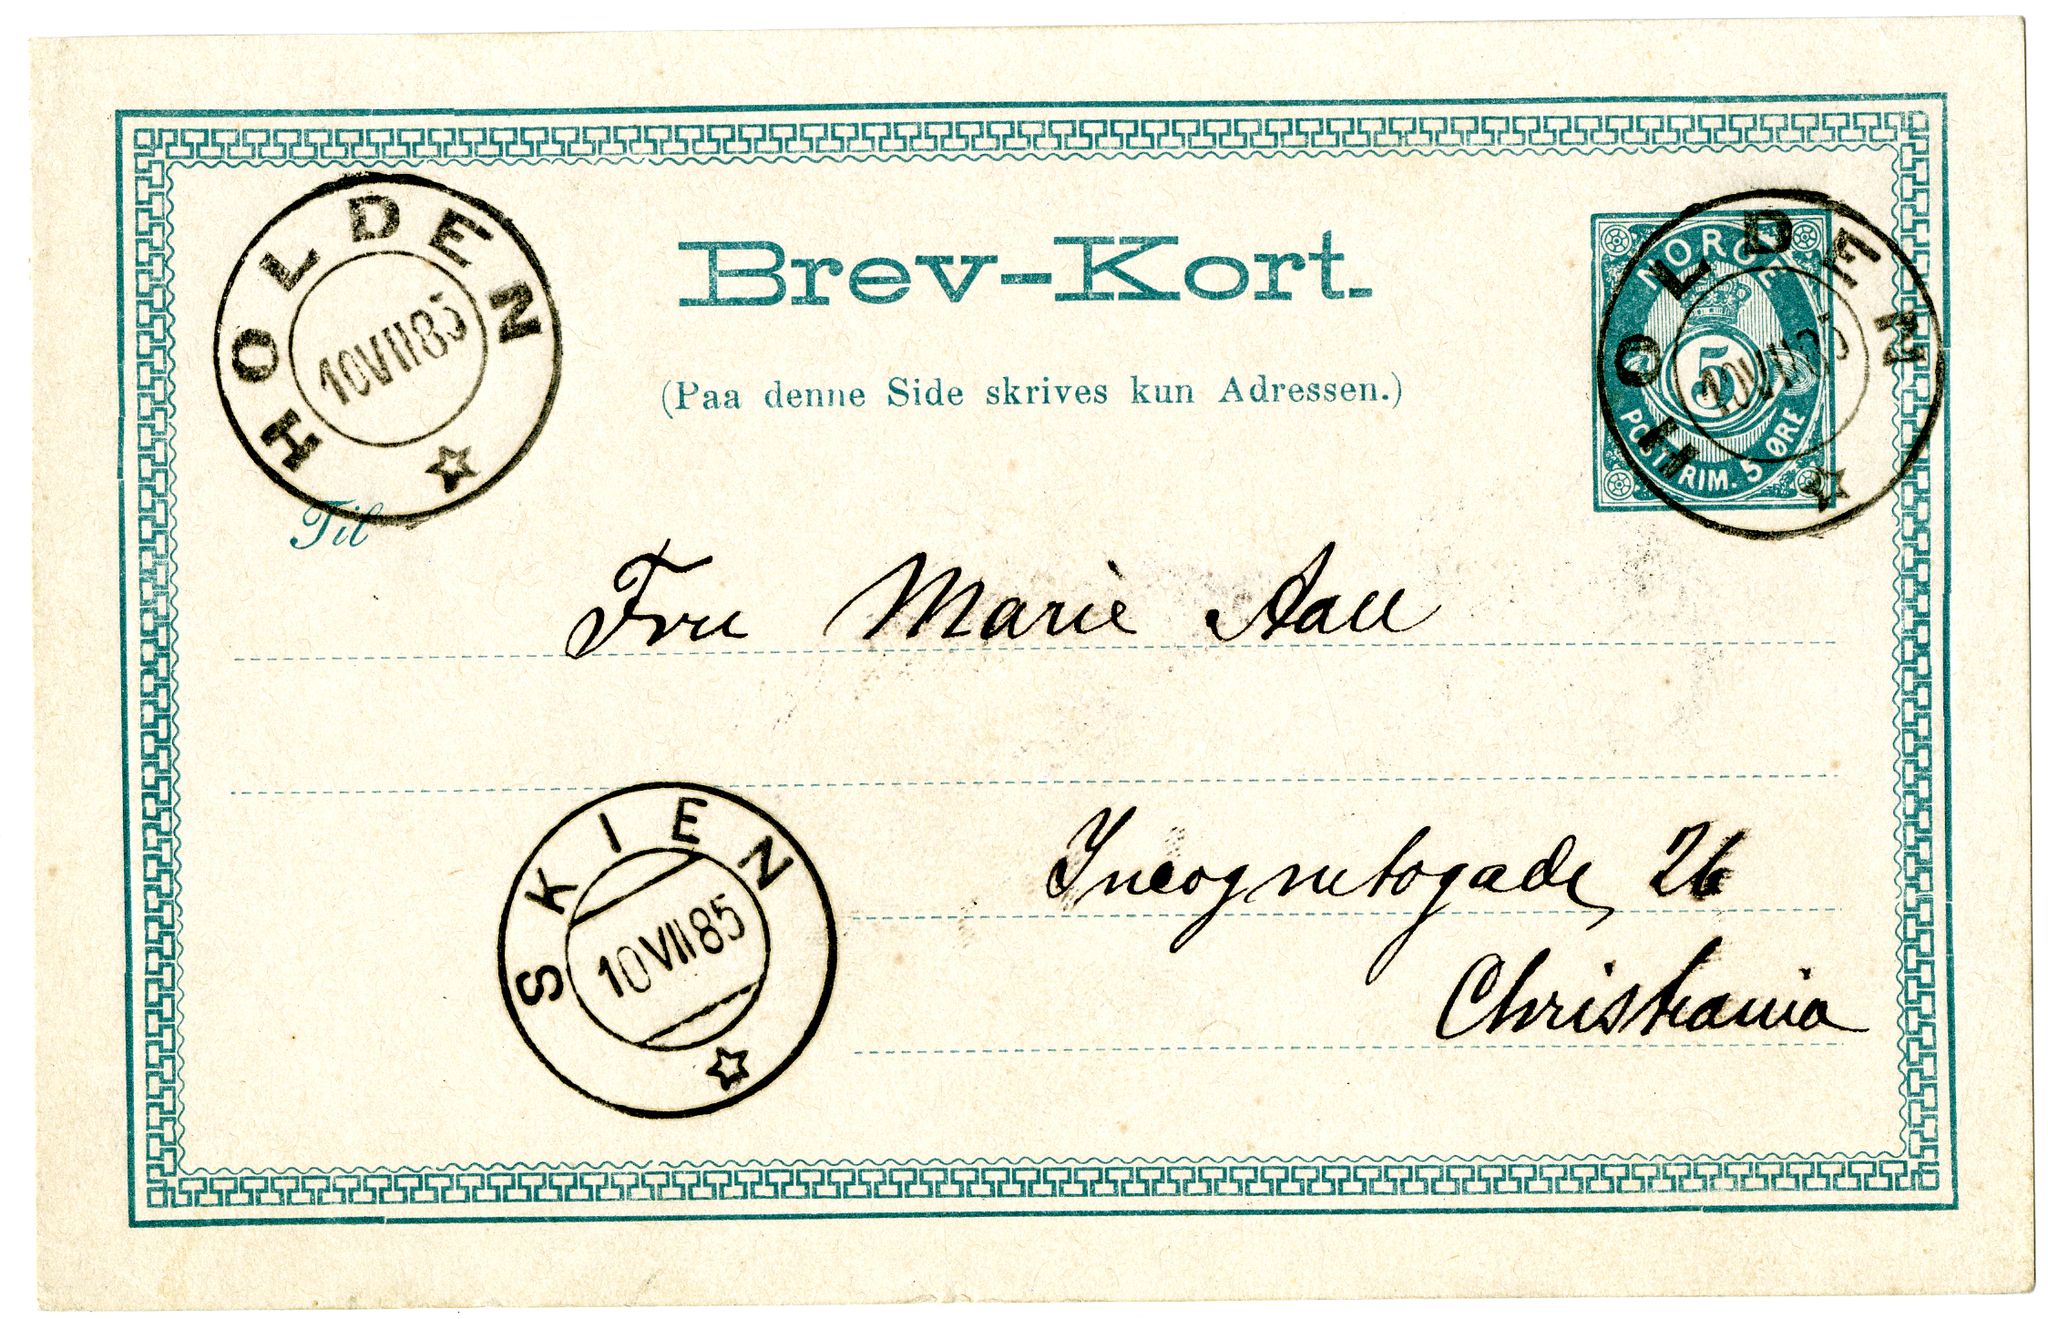 HOLDEN
10 VII 85
Brev-Kort.
(Paa denne Side skrives kun Adressen.)
NORGE
5
POSTFRIM. 5 ØRE
HOLDEN
10 VII 85
Til
Fru Marie Aall
SKIEN
10 VII 85
Incognitogade 26
Christiania